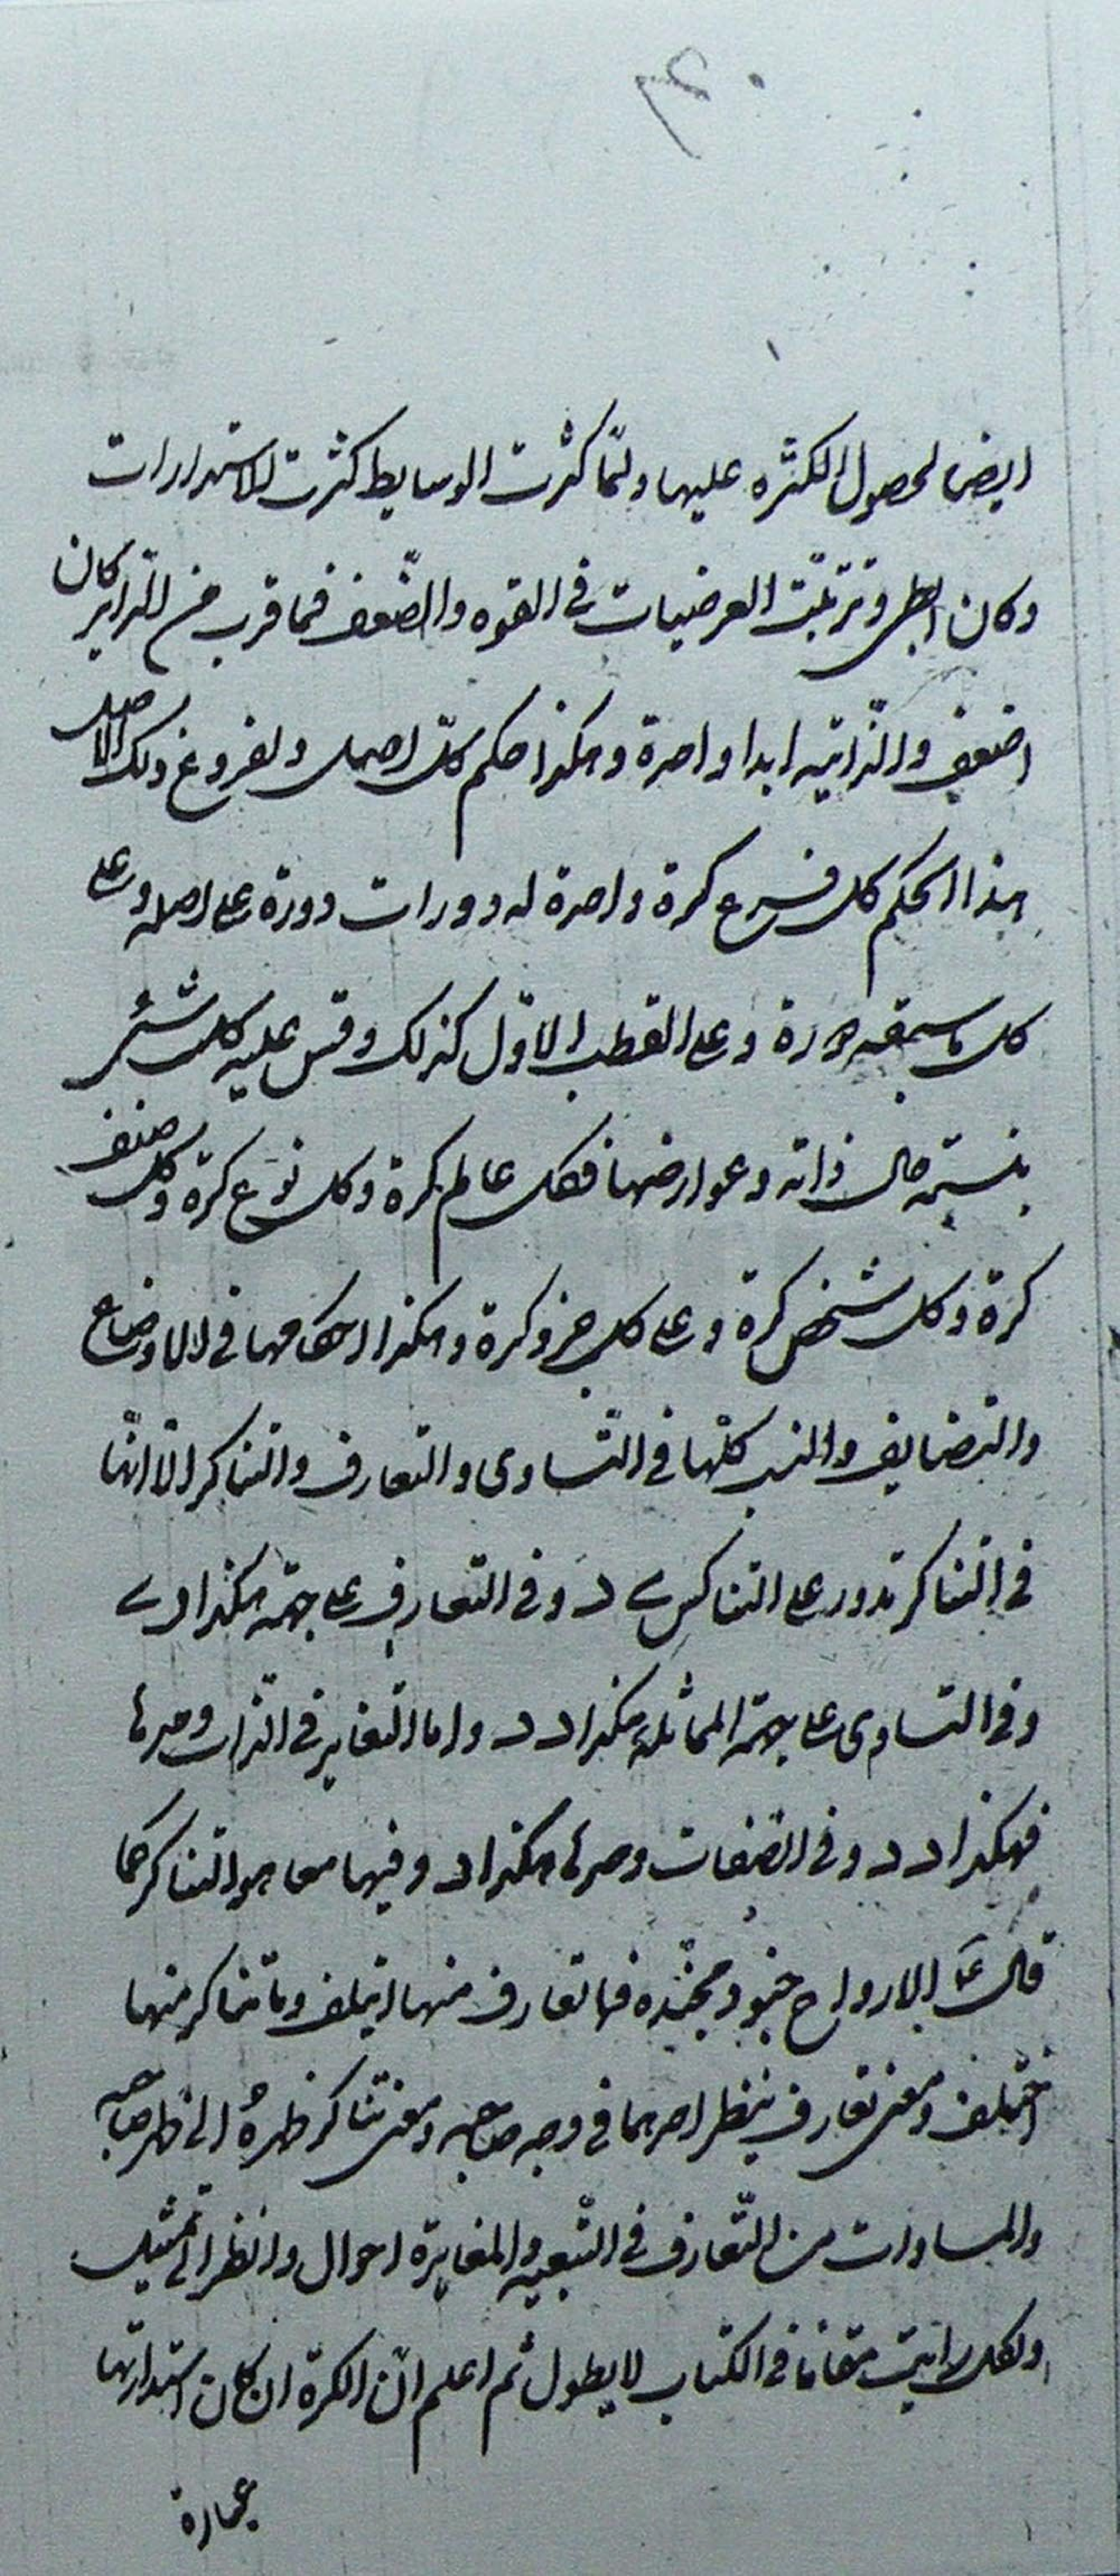 ايضا لحصول الكثره عليها ولمّا كثرت الوسايط كثرت الاستدارات
وكان ابطى وترتبت العرضيات فى القوه والضّعف فما قرب من الدّاير كان
اضعف والذّاتيه ابدا واحدة وهكذا حكم كلّ اصل ولفروع ذلك الاصل
هذا الحكم كل فرع كرة واحدة له دورات دورة على اصله وعلى
كل ما سبقه دورة وعلى القطب الاوّل كذلك وقس عليه كل شئ
بنسبة حال ذاته وعوارضها فكل عالم كرة وكل نوع كرة وكل صنف
كرة وكل شخص كرة وعلى كل جزو كرة وهكذا احكامها فى الاوضاع
والتضايف والنسب كلّها فى التّساوى والتعارف والتناكر الّا انّها
فى التناكر تدور على التناكس د وفى التعارف على جهة هكذا د
وفى التساوى على جهة المماثلة هكذا د د واما التغاير فى الذّات وحدها
فهكذا د د وفى الصّفات وحدها هكذا د وفيهما معا هو التناكر كما
قال ع الارواح جنود مجنّده فما تعارف منها ايتلف وما تناكر منها
اختلف ومعنى تعارف ينظر احدهما فى وجه صاحبه ومعنى تناكر ظهرهُ الى ظهر صاحبه
والمساوات من التّعارف فى التّبعيه والمغايرة احوال وانظر الى تمثيل
ولكل رايت مقاما فى الكتاب لا يطول ثم اعلم انّ الكرة ان كان استدارتها
عبارة